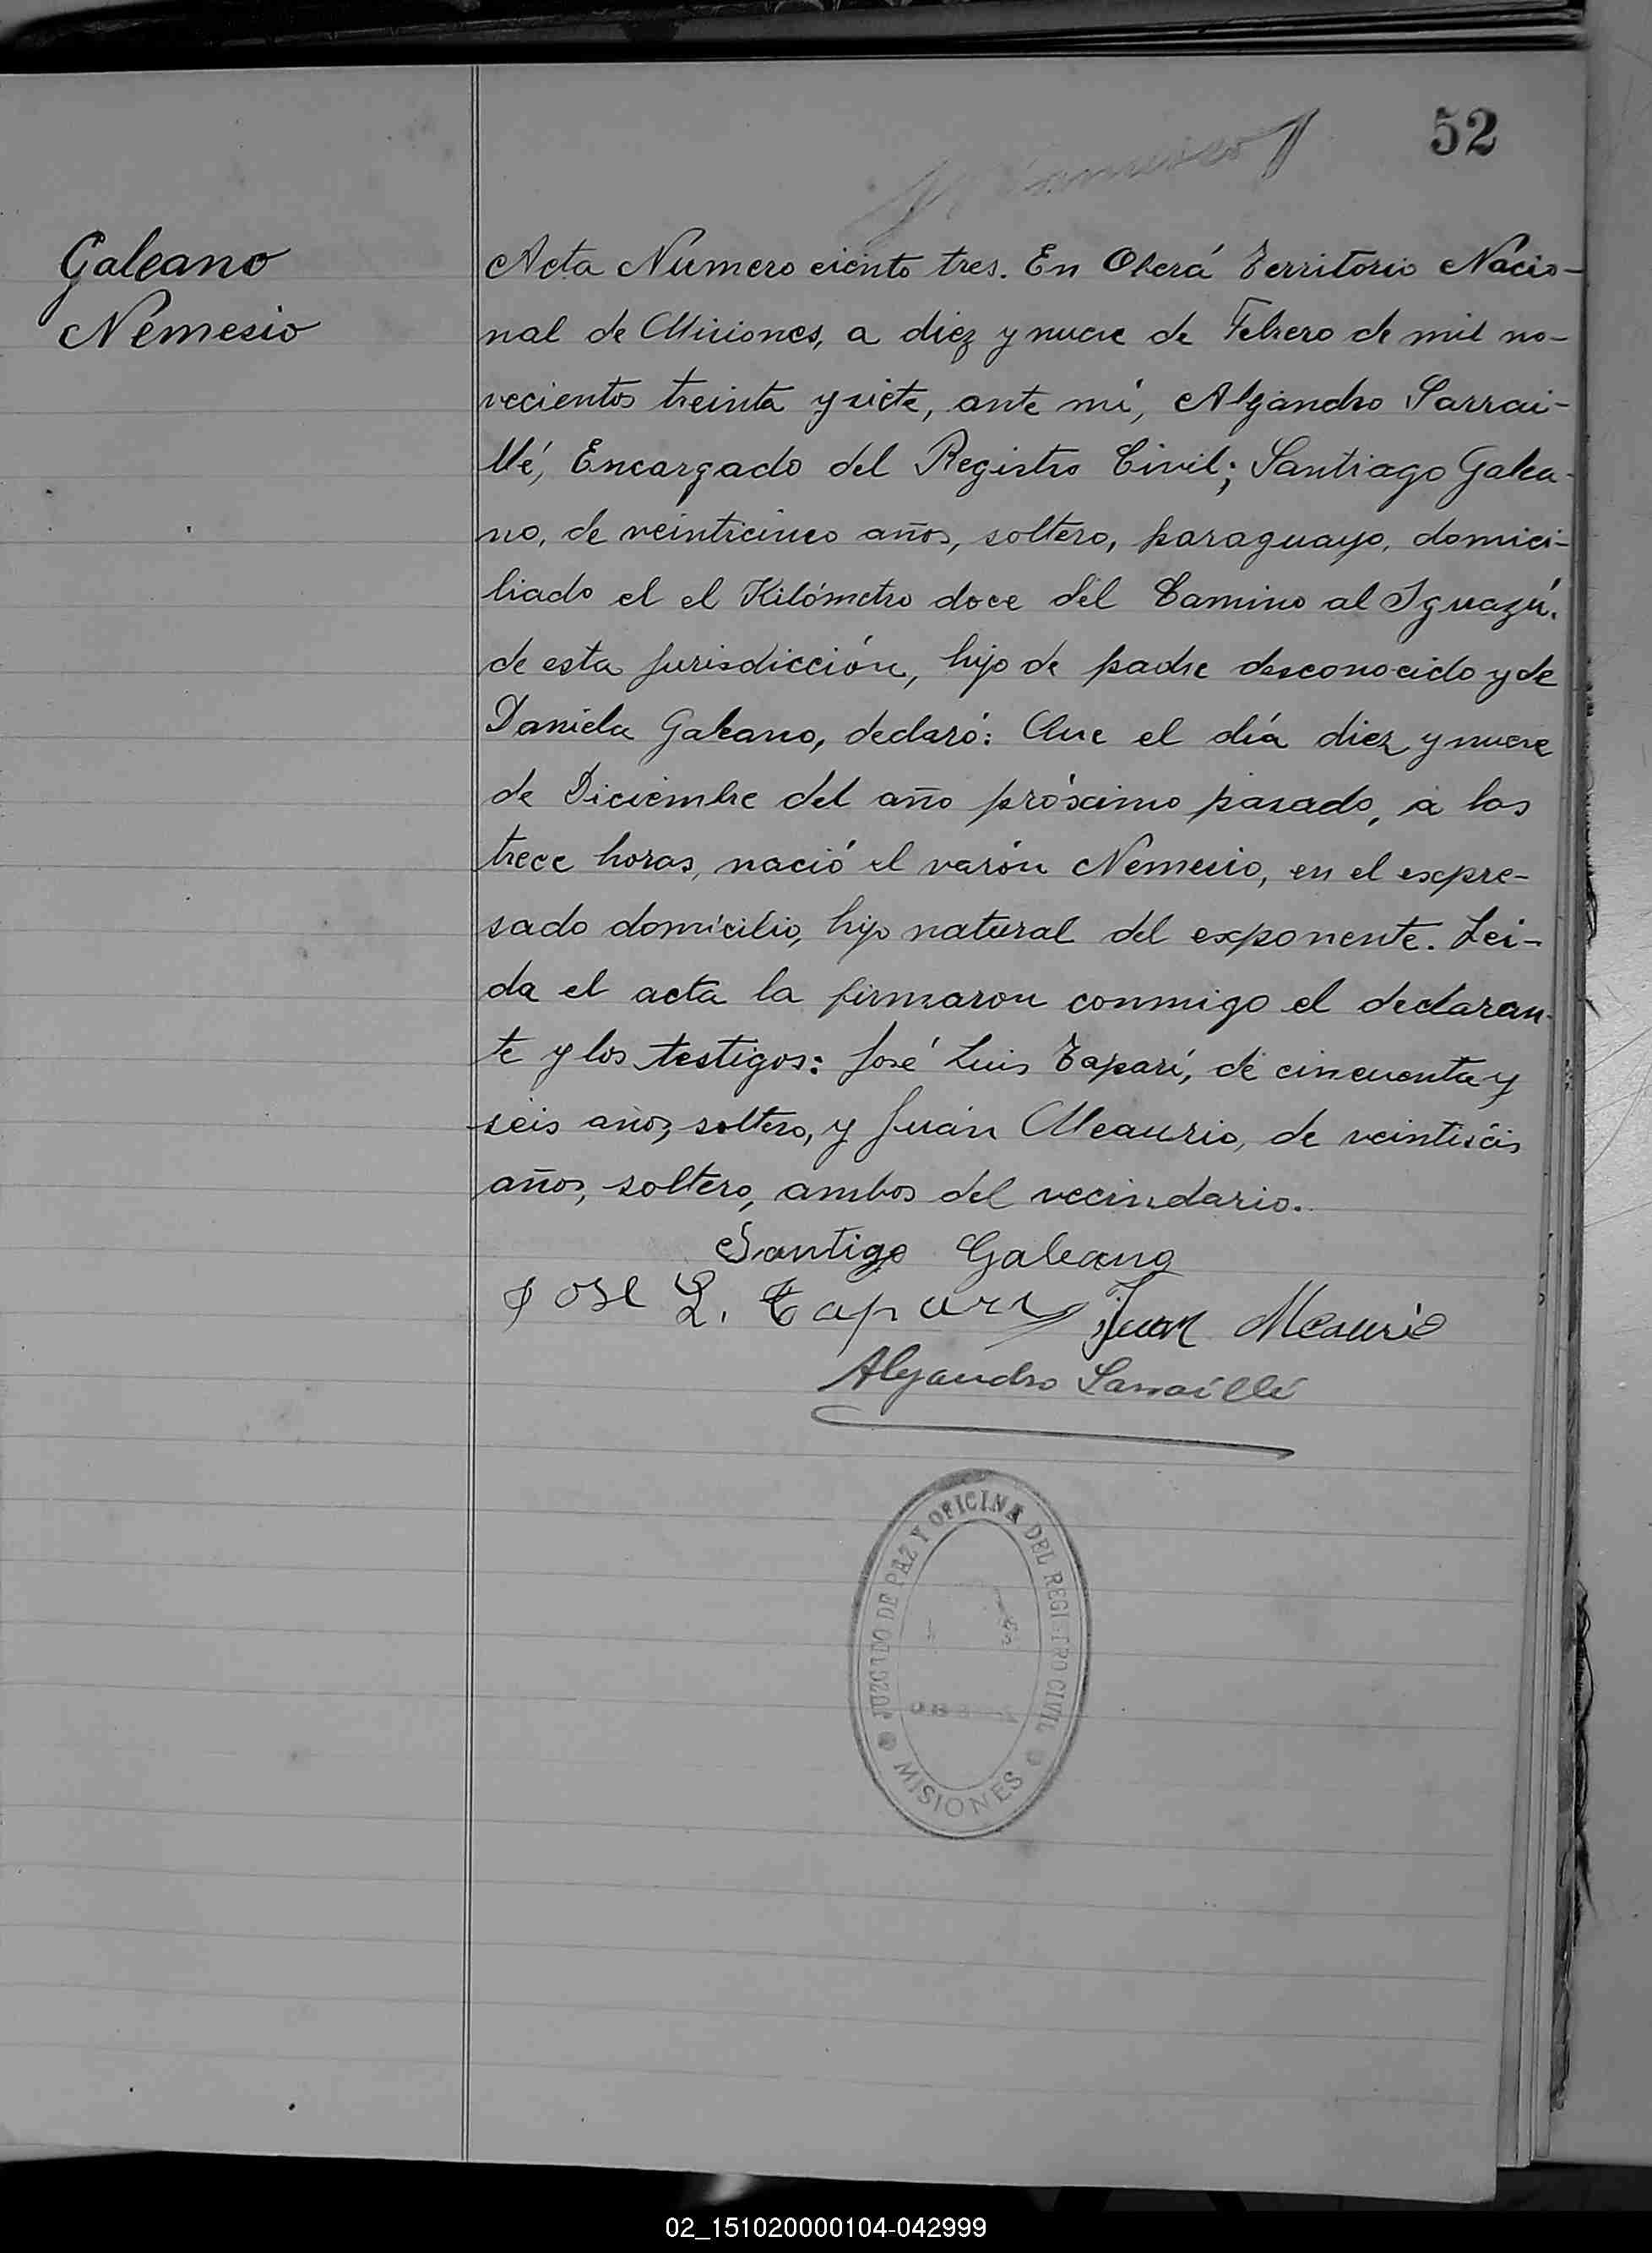 52
Galeano
Nemesio
Acta Numero ciento tres. En Oberá Territorio Nacio-
nal de Misiones, a diez y nueve de Febrero de mil no-
vecientos treinta y siete, ante mi, Alejandro Sarrai-
llé, Encargado del Registro Civil; Santiago Galea-
no, de veinticinco años, soltero, paraguayo, domici-
liado el el Kilómetro doce del Camino al Iguazú.
de esta jurisdicción, hijo de padre desconocido y de
Daniela Galeano, declaró: Que el día diez y nueve
de Diciembre del año próximo pasado, a las
trece horas, nació el varón Nemesio, en el expre-
sado domicilio, hijo natural del exponente. Lei-
da el acta la firmaron conmigo el declaran-
te y los testigos: José Luis Taparí, de cincuenta y
seis años, soltero, y Juan Meaurio, de veintiséis
años, soltero, ambos del vecindario.
Santigo Galeano
Jose L. Tapari Juan Meaurio
Alejandro Sarraillé
JUZGADO DE PAZ Y OFICINA DEL REGISTRO CIVIL
MISIONES
02_151020000104-042999